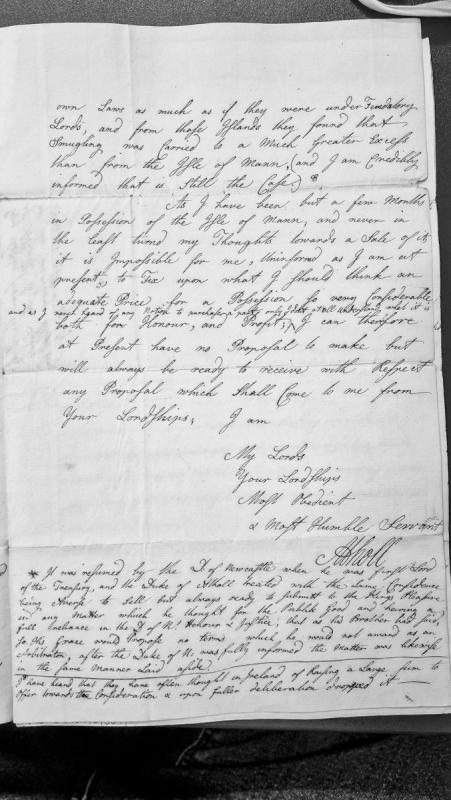 own Laws as much as if they were under Feudatory
Lords, and from those Islands they found that
Smugling was Carried to a Much Greater Excess
than from the Isle of Mann, (and I am Credibly
informed that is Still the Case)
As I have been but a few Months
in Possession of the Isle of Mann, and never in
the least turnd my Thoughts towards a Sale of it,
it is Impossible for me, Uninformed as I am at
present, to Fix upon what I should think an
adequate Price for a Possession so very Considerable
and as I never heard of any Notion to purchase a part only I dont at all understand what it is
both for Honour, and Profit; I can therefore
at Present have no Proposal to make but
will always be ready to receive with Respect
any Proposal which Shall Come to me from
Your Lordships; I am
My Lords
Your Lordships
Most Obedient
& Most Humble Servant
Atholl
* It was resumed by the D of Newcastle when he was first Lord
of the Treasury, and the Duke of Atholl treated with the same Confidence
being Averse to Sell but always ready to submit to the Kings Pleasure
in any Matter which he thought for the Publick Good and having a
full Reliance in the D of N: Honour & Justice; that as his Brother had said,
so His Grace would Propose no terms which he would not award as an
Arbitrator, after the Duke of N: was fully informed the Matter was likewise
in the same Manner Laid aside
I have heard that they have often thought in Ireland of Raising a Large sum to
Offer towards the Consideration & upon fuller deliberation it